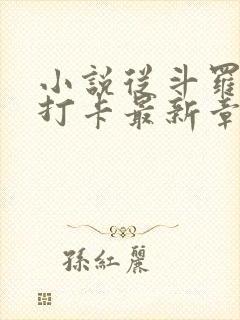 小說從斗羅
打卡最新章
孫紅麗